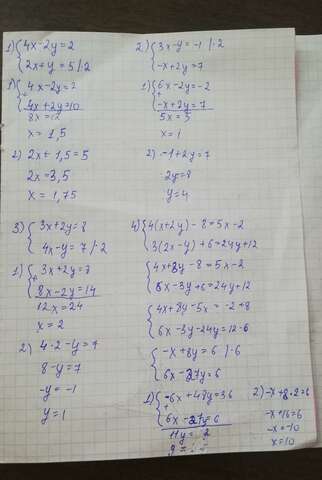 1) { 4x-2y=2
2x+y=5 |·2
1) { 4x-2y=2
+
4x+2y=10
8x=12
x=1,5
2) 2x+1,5=5
2x=3,5
x=1,75
2) { 3x-y=-1 |·2
-x+2y=7
1) { 6x-2y=-2
+
-x+2y=7
5x=5
x=1
2) -1+2y=7
2y=8
y=4
3) { 3x+2y=8
4x-y=7 |·2
1) { 3x+2y=
+
8x-2y=14
12x=24
x=2
2) 4·2-y=7
8-y=7
-y=-1
y=1
4) { 4(x+2y)-8=5x-2
3(2x-y)+6=24y+12
{ 4x+8y-8=5x-2
6x-3y+6=24y+12
{ 4x+8y-5x=-2+8
6x-3y-24y=12-6
{ -x+8y=6 |·6
6x-27y=6
1) { -6x+48y=36
+
6x-27y=6
y=
2) -x+8·2=6
-x+16=6
-x=-10
x=10